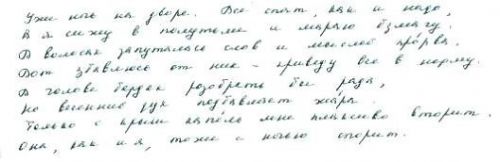 Уже ночь на дворе. Все спят, как и надо,
А я сижу в полутьме и мараю бумагу.
В волосах запуталась слов и мыслей прóрва,
Вот избавлюсь от них - приведу все в норму.
В голове бардак разобрать бы рада,
Но весенний дух поддавливает жáра.
Только с крыш капель мне плаксиво вторит.
Она, как и я, тоже с ночью спорит.